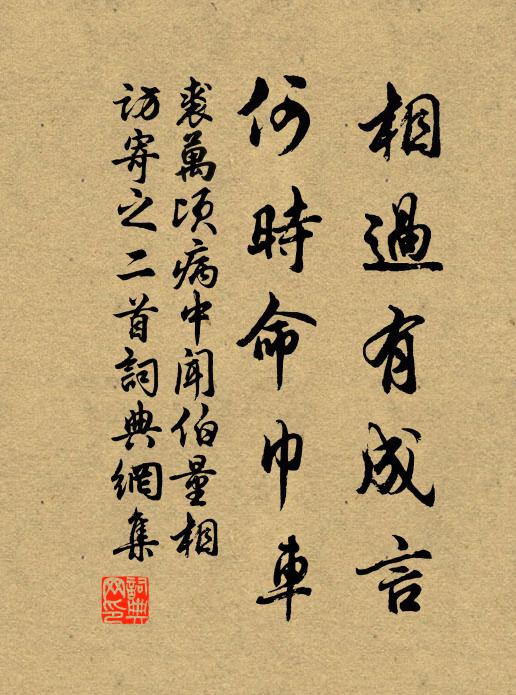 相過有成言
何時命巾車
裘萬頃病中聞伯量相
訪寄之二首詞典網集
詞典
网印